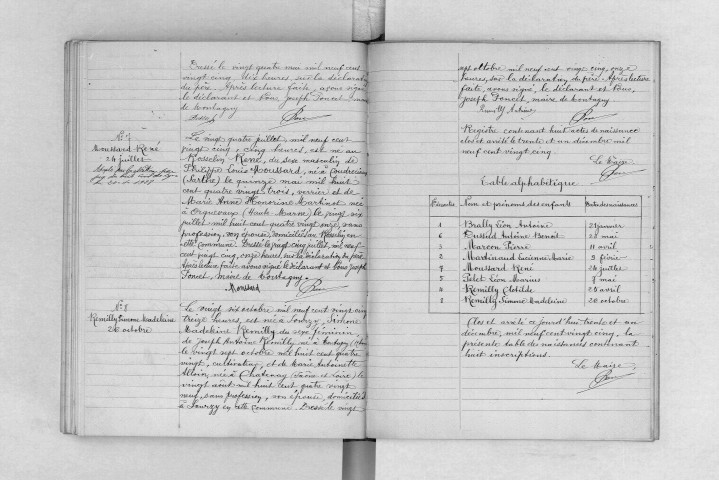 Dressé le vingt quatre mai mil neuf cent
vingt cinq, dix heures, sur la déclaration
du père. Après lecture faite, avons signé
le déclarant et Nous, Joseph Poncet, maire
de Montagny
N° 7
Moussard René
24 juillet
Le vingt quatre juillet, mil neuf cent
vingt cinq, cinq heures, est né au
Rosselin René, du sexe masculin de
Philippe Louis Moussard, né à Coudrecieux
(Sarthe) le quinze mai mil huit
cent quatre vingt trois, verrier et de
Marie Anne Honorine Martinot née
à Orquevaux (Haute Marne) le vingt six
juillet mil huit cent quatre vingt onze, sans
profession, son épouse, domiciliés au Rosselin en
cette commune. Dressé le vingt cinq juillet, mil neuf
cent vingt cinq, onze heures, sur la déclaration du père.
Après lecture faite avons signé le déclarant et Nous Joseph
Poncet, maire de Montagny.
Moussard
N° 8
Remilly Simone Madeleine
26 octobre
Le vingt six octobre mil neuf cent vingt cinq
treize heures, est née à Simone
Madeleine Remilly du sexe féminin,
de Joseph Antoine Remilly né à Montagny
le vingt sept octobre mil huit cent quatre
vingt, cultivateur et de Marie Antoinette
née à Châtenay (Saône et Loire) le
vingt août mil huit cent quatre vingt
neuf, sans profession, son épouse, domiciliés
à en cette commune. Dressé le vingt
sept octobre mil neuf cent vingt cinq, onze
heures, sur la déclaration du père. Après lecture
faite, avons signé, le déclarant et Nous,
Joseph Poncet, maire de Montagny
Remilly Antoine
Registre contenant huit actes de naissance
clos et arrêté le trente et un décembre mil
neuf cent vingt cinq.
Le Maire
Table alphabétique
Nom et prénoms des enfants Date des naissances
1 Brally Léon Antoine 21 janvier
6 Antoine Benoit 23 mai
3 Marcon Pierre 11 avril
2 Martinaud Lucienne Marie 9 février
7 Moussard René 24 juillet
5 Polet Léon Marius 7 mai
4 Remilly Clotilde 28 avril
8 Remilly Simone Madeleine 26 octobre
Clos et arrêté ce jourd'hui trente et un
décembre, mil neuf cent vingt cinq, la
présente table de naissances contenant
huit inscriptions.
Le Maire